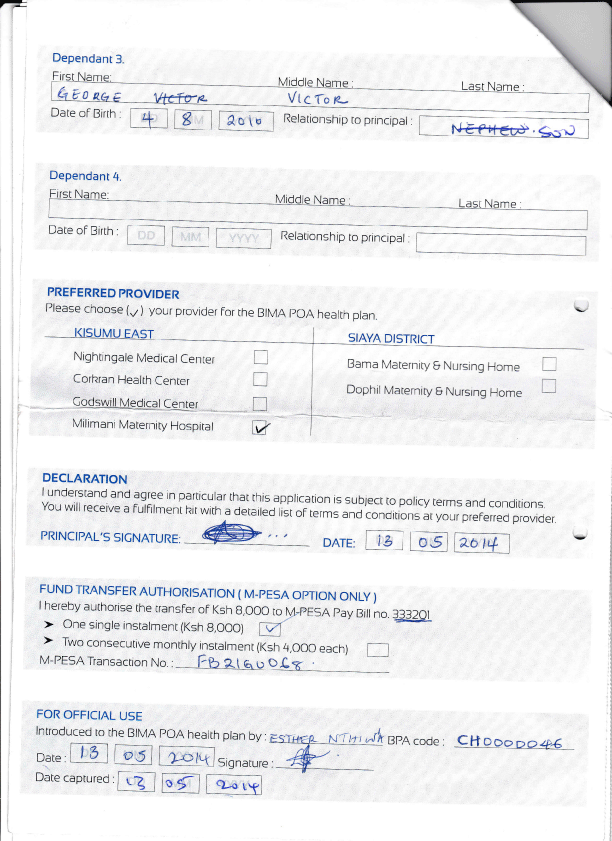 Dependant 3.
First Name: Middle Name : Last Name :
GEORGE VICTOR VICTOR
Date of Birth : 4 8 2010 Relationship to principal : NEPHEW. SON
Dependant 4.
First Name: Middle Name : Last Name :
Date of Birth : DD MM YYYY Relationship to principal :
PREFERRED PROVIDER
Please choose (✓) your provider for the BIMA POA health plan.
KISUMU EAST SIAYA DISTRICT
Nightingale Medical Center
Bama Maternity & Nursing Home
Corkran Health Center
Dophil Maternity & Nursing Home
Godswill Medical Center
Milimani Maternity Hospital ✓
DECLARATION
I understand and agree in particular that this application is subject to policy terms and conditions.
You will receive a fulfilment kit with a detailed list of terms and conditions at your preferred provider.
PRINCIPAL'S SIGNATURE: DATE: 13 05 2014
FUND TRANSFER AUTHORISATION ( M-PESA OPTION ONLY )
I hereby authorise the transfer of Ksh 8,000 to M-PESA Pay Bill no. 333201
➤ One single instalment (Ksh 8,000) ✓
➤ Two consecutive monthly instalment (Ksh 4,000 each)
M-PESA Transaction No. : FB21GU068
FOR OFFICIAL USE
Introduced to the BIMA POA health plan by : ESTHER NTHIWA BPA code : CH0000046
Date : 13 05 2014 Signature :
Date captured : 13 05 2014